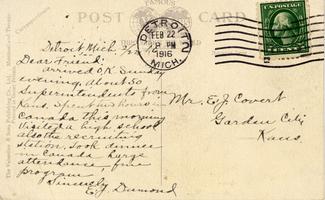 FAMOUS
POST CARD
Correspondence
The Valentine & Sons Publishing Co., Ltd.
DETROIT
FEB 22
PM
1916
MICH.
U.S. POSTAGE
Detroit Mich. 2/22
Dear Friend:
arrived O.K. Sunday
evening, about 50
Superintendents from
Kans. Spent two hours in
Canada this morning
Visited a high school
also the recruiting
station. Took dinner
in Canada Large
attendance, fine
program
Sincerely
E. J. Dumond
Mr. E J Covert
Garden City
Kans.